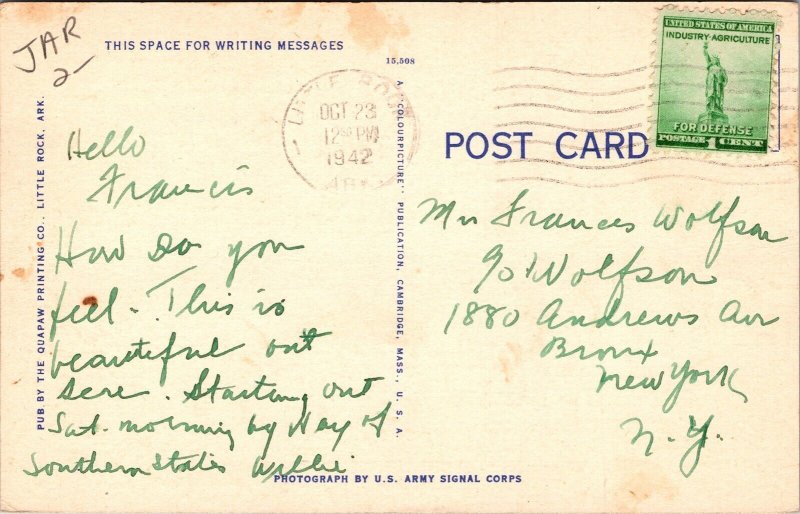 JAR
2-
THIS SPACE FOR WRITING MESSAGES
15,508
UNITED STATES OF AMERICA
INDUSTRY·AGRICULTURE
FOR DEFENSE
POSTAGE 1 CENT
LITTLE ROCK
OCT 23
12 30 PM
1942
ARK
POST CARD
PUB. BY THE QUAPAW PRINTING CO., LITTLE ROCK, ARK.
A "COLOURPICTURE" PUBLICATION, CAMBRIDGE, MASS., U. S. A.
Hello
Francis
How Do you
feel. This is
beautiful out
here. Starting out
Sat. morning by Way of
Southern States Willie
Frances Wolfson
c/o Wolfson
1880 Andrews Av
Bronx
New York
N.Y.
PHOTOGRAPH BY U.S. ARMY SIGNAL CORPS